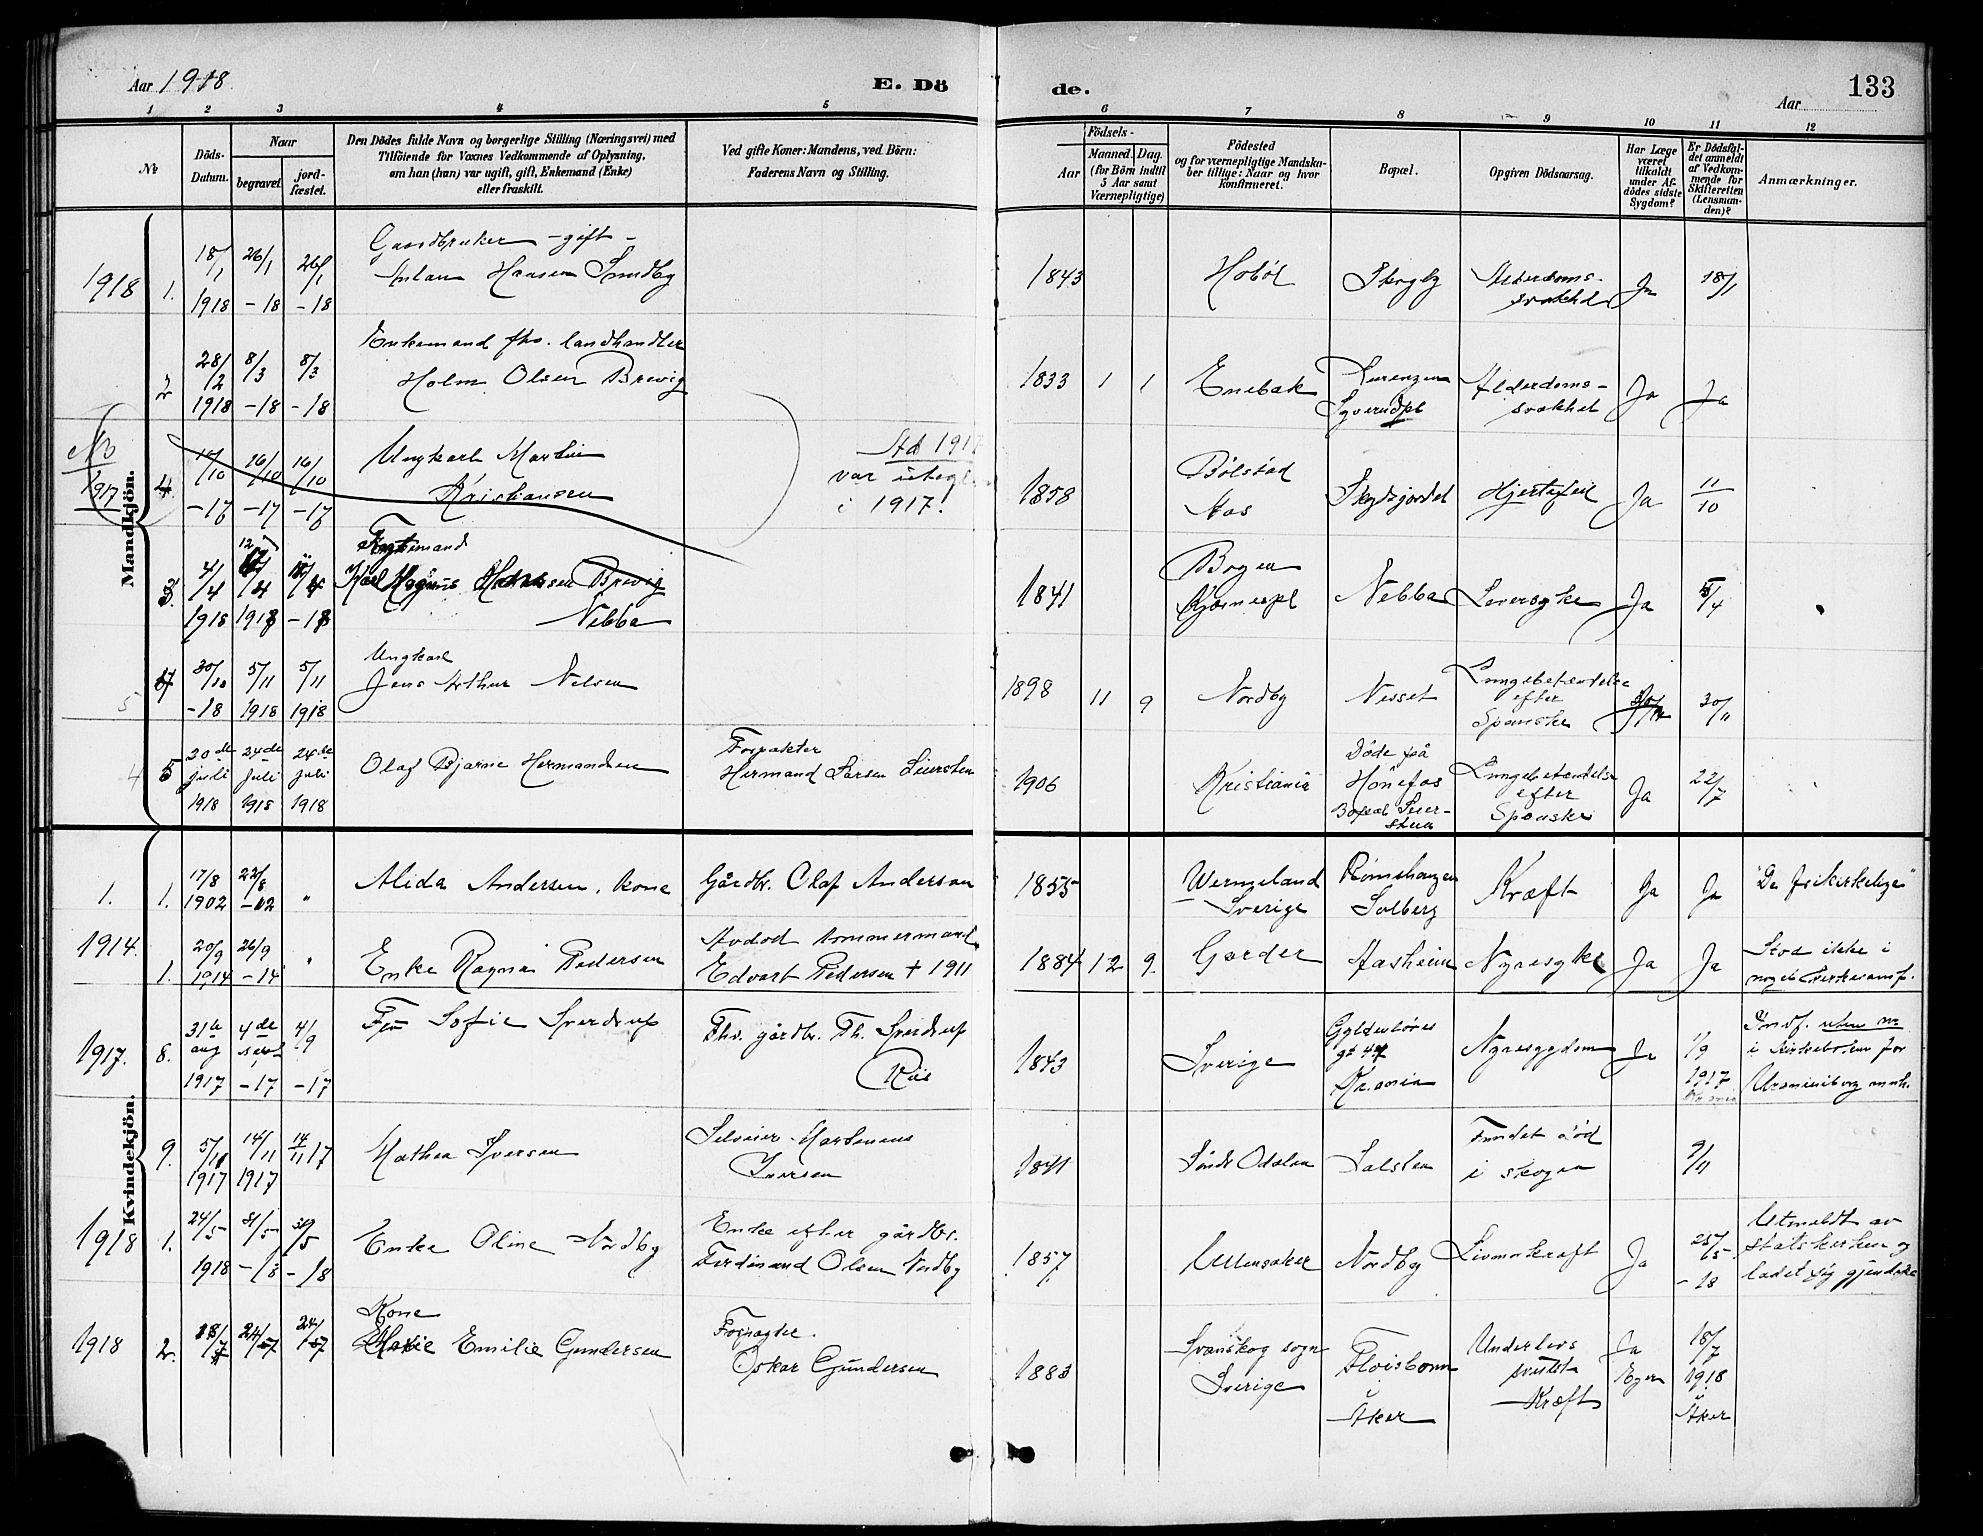 Aar 1918.
E. Dö
de.
133
Aar
1 2 3 4 5
6 7 8 9 10 11 12
No
Döds-
Datum.
Naar
begravet.
jord-
fæstet.
Den Dödes fulde Navn og borgerlige Stilling (Næringsvei) med
Tilföiende for Voxnes Vedkommende af Oplysning,
om han (hun) var ugift, gift, Enkemand (Enke)
eller fraskilt.
Ved gifte Koner: Mandens, ved Börn:
Faderens Navn og Stilling.
Födsels-
Aar
Maaned. Dag.
(for Börn indtil
5 Aar samt
Værnepligtige)
Födested
og for værnepligtige Mandska-
ber tillige: Naar og hvor
konfirmeret.
Bopæl.
Opgiven Dödsaarsag.
Har Læge
været
tilkaldt
under Af-
dödes sidste
Sygdom?
Er Dödsfal-
det anmeldt
af Vedkom-
mende for
Skifteretten
(Lensman-
den)?
Anmærkninger.
Mandkjön.
1918 1. 18/1 1918 26/1 -18 26/1 -18
Gaardbruker - gift -
Anton Hansen Sundby
1843 Hobøl Skogby Alderdoms-
svakhet Ja 18/1
2 28/2 1918 8/3 -18 8/3 -18
Enkemand fhv. landhandler
Holm Olsen Brevig
1833 1 1 Enebak
Sgverudpl Alderdoms-
svakhet Ja Ja
No
1917
4. /10 -17 16/10 -17 16/10 -17
Ungkarl Martin
Kristiansen
Std 1917
var uteg
i 1917!
1858 Bölstad
Aas
Hjertefeil Ja 11/10
3. 4/4 1918 12/4 1918 /4 -18
Karl Magnus Hansen Brevig
Nebba
1841 Bogen
Nebba Leversyke Ja 5/4
5 30/10 -18 5/11 1918 5/11 1918
Ungkarl
Jens Arthur Nelsen
1898 11 9 Nordby Nesset Lungebetændelse
efter
Spanske 30/11
4 5 20de juli 1918 24de juli 1918 24de juli 1918
Olaf Bjarne Hermandsen
Forpakter
Hermand Larsen Seiersten
1906 Kristiania Döde på
Hönefos
Bopæl Seier-
sten
Lungebetændelse
efter
Spanske Ja 22/7
Kvindekjön.
1. 1. 17/8 1902 22/8 -02 "
Alida Andersen, kone
Gårdbr. Olaf Anderson
1855 Wermeland
Sverige
Solberg Kræft Ja Ja "De frikirkelige"
1914. 1. 20/9 1914 26/9 -14 "
Enke Ragna Pedersen
Avdød tømmermand
Edvart Pedersen † 1911
1884 12 9. Garder Aasheim Nyresyke Ja Ja Stod ikke i
noget kirkesamf.
1917. 8. 31te aug 1917 4de sept -17 4/9 -17
Fru Sofie Sverdrup
Fhv. gårdbr. Th. Sverdrup
Riis
1843 Sverige Gyldenløves
gt 47
Kr.ania Nyresygdom Ja 1/9
1917
Indf. uten no
i kirkeboken for
Uranienborg menh.
9. 5/11 1917 14/11 1917 14/11 17
Mathea Iversen
Martinius
Iversen
1841 Sönd. Odalen Salsten Fundet død
i skogen 9/11
1918 1. 24/5 1918 31/5 -18 31/5 -18
Enke Oline Nordby
Enke efter gårdbr.
Ferdinand Olsen Nordby
1857 Ullensaker Nordby Livmorkræft Ja 25/5
-18
Utmeldt av
statskirken og
ladet sig gjendøpe
1918 2. 18/7 24/7 24/7
Kone
Marie Emilie Gundersen
Forpagter
Oskar Gundersen
1883 Svanskog sogn
Sverige
Fløisbonn
i
Aker
Underlivs
svulst
Kræft
Ja
18/7
1918
Aker